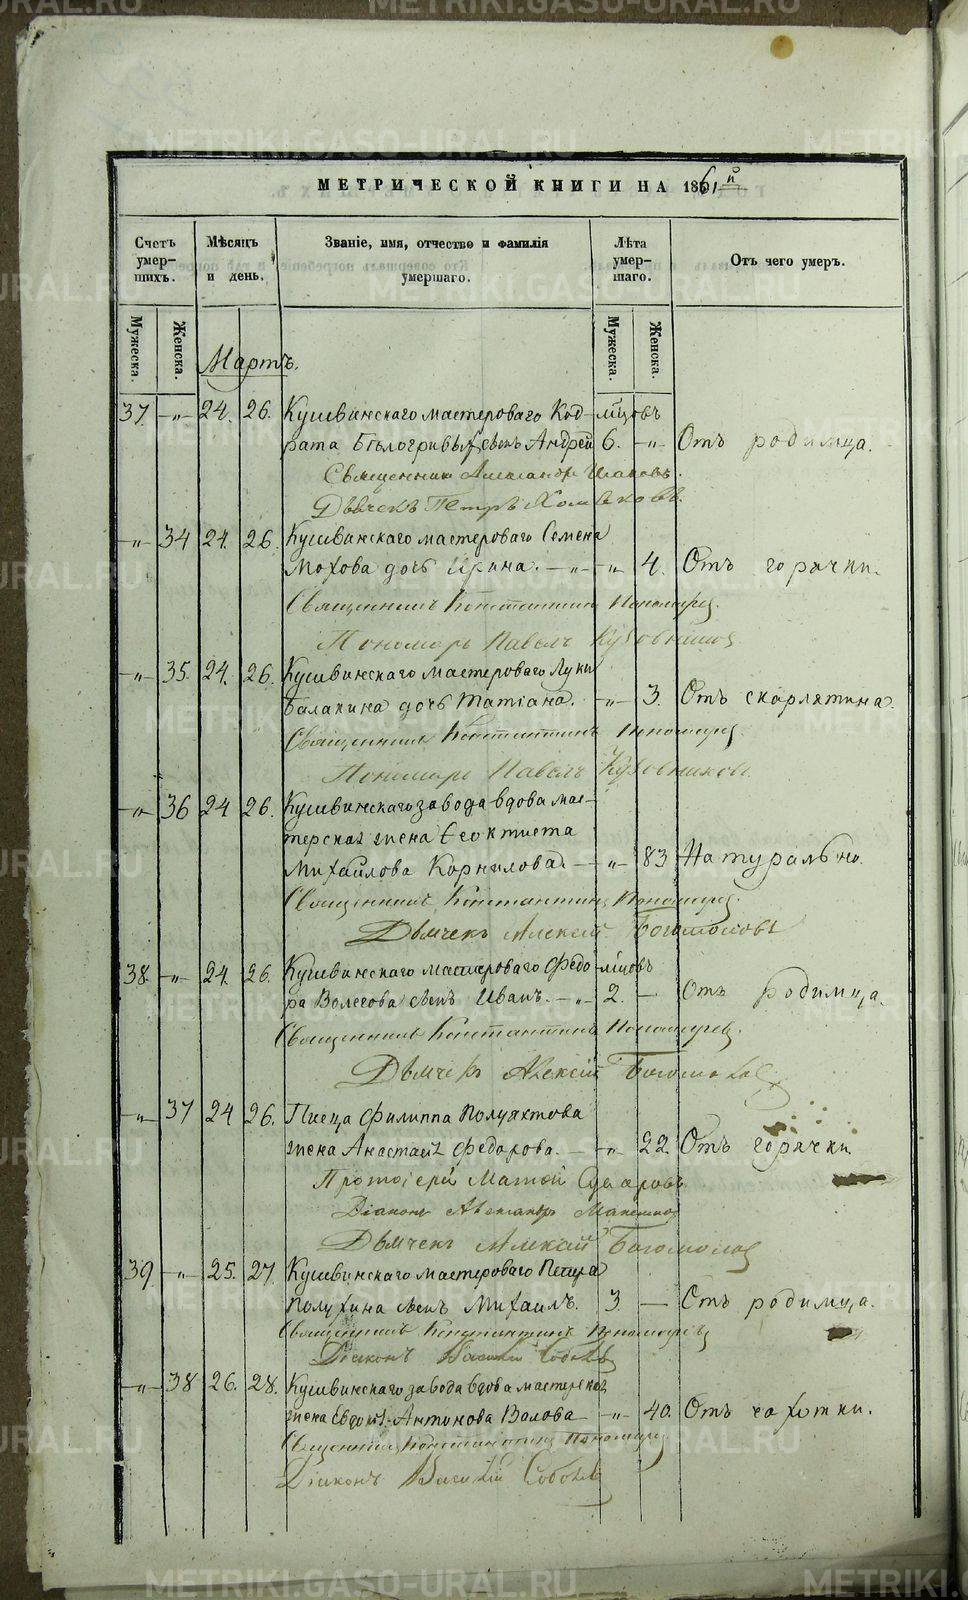 МЕТРИЧЕСКОЙ КНИГИ НА 1861й
Счетъ умер-шихъ. Мѣсяцъ и день. Званіе, имя, отчество и фамилія умершаго. Лѣта умер-шаго. Отъ чего умеръ.
Мужеска. Женска. Мужеска. Женска.
Мартъ.
37. -„- 24. 26. Кушвинскаго мастероваго Код- мѣсцовъ
рата Бѣлогривы сынъ Андрей 6. -„- Отъ родимца.
Священникъ Александръ
Дьячекъ Петръ Хомяковъ.
-„- 34 24. 26. Кушвинскаго мастероваго Семена
Мохова дочь Ирина. -„- -„- 4. Отъ горячки.
Священникъ Константинъ Пономарев
Пономарь Павелъ Кузовников
-„- 35. 24. 26. Кушвинскаго мастероваго Луки
Балакина дочь Татіана. -„- 3. Отъ скарлятина.
Священникъ Константинъ Пономарев
Пономарь Павелъ Кузовниковъ
-„- 36 24 26. Кушвинскаго завода вдова мас-
терская жена Феоктиста
Михайлова Корнилова -„- 83 Натурально.
Священникъ Константинъ Пономарев.
Дьячекъ Алексѣй Богомоловъ
38. -„- 24. 26. Кушвинскаго мастероваго Федо- мѣсцовъ
ра Волегова сынъ Иванъ. -„- 2. — Отъ родимца.
Священникъ Константинъ Пономарев.
Дьячекъ Алексѣй Богомолов
-„- 37 24 26. Писца Филиппа Полуяхтова
жена Анастасія Федорова. -„- 22. Отъ горячки.
Протоіерей Матѳей Сухаровъ
Діаконъ Александръ
Дьячекъ Алексѣй Богомолов
39. -„- 25. 27. Кушвинскаго мастероваго Петра
Полухина сынъ Михаилъ. 3. — Отъ родимца.
Священникъ Константинъ Пономаревъ
Діаконъ Василій Соболевъ
-„- 38 26. 28. Кушвинскаго завода вдова мастерская
жена Евдокія Антонова Валова -„- 40. Отъ чахотки.
Священникъ Константинъ Пономарев
Діаконъ Василій Соболевъ
METRIKI.GASO-URAL.RU